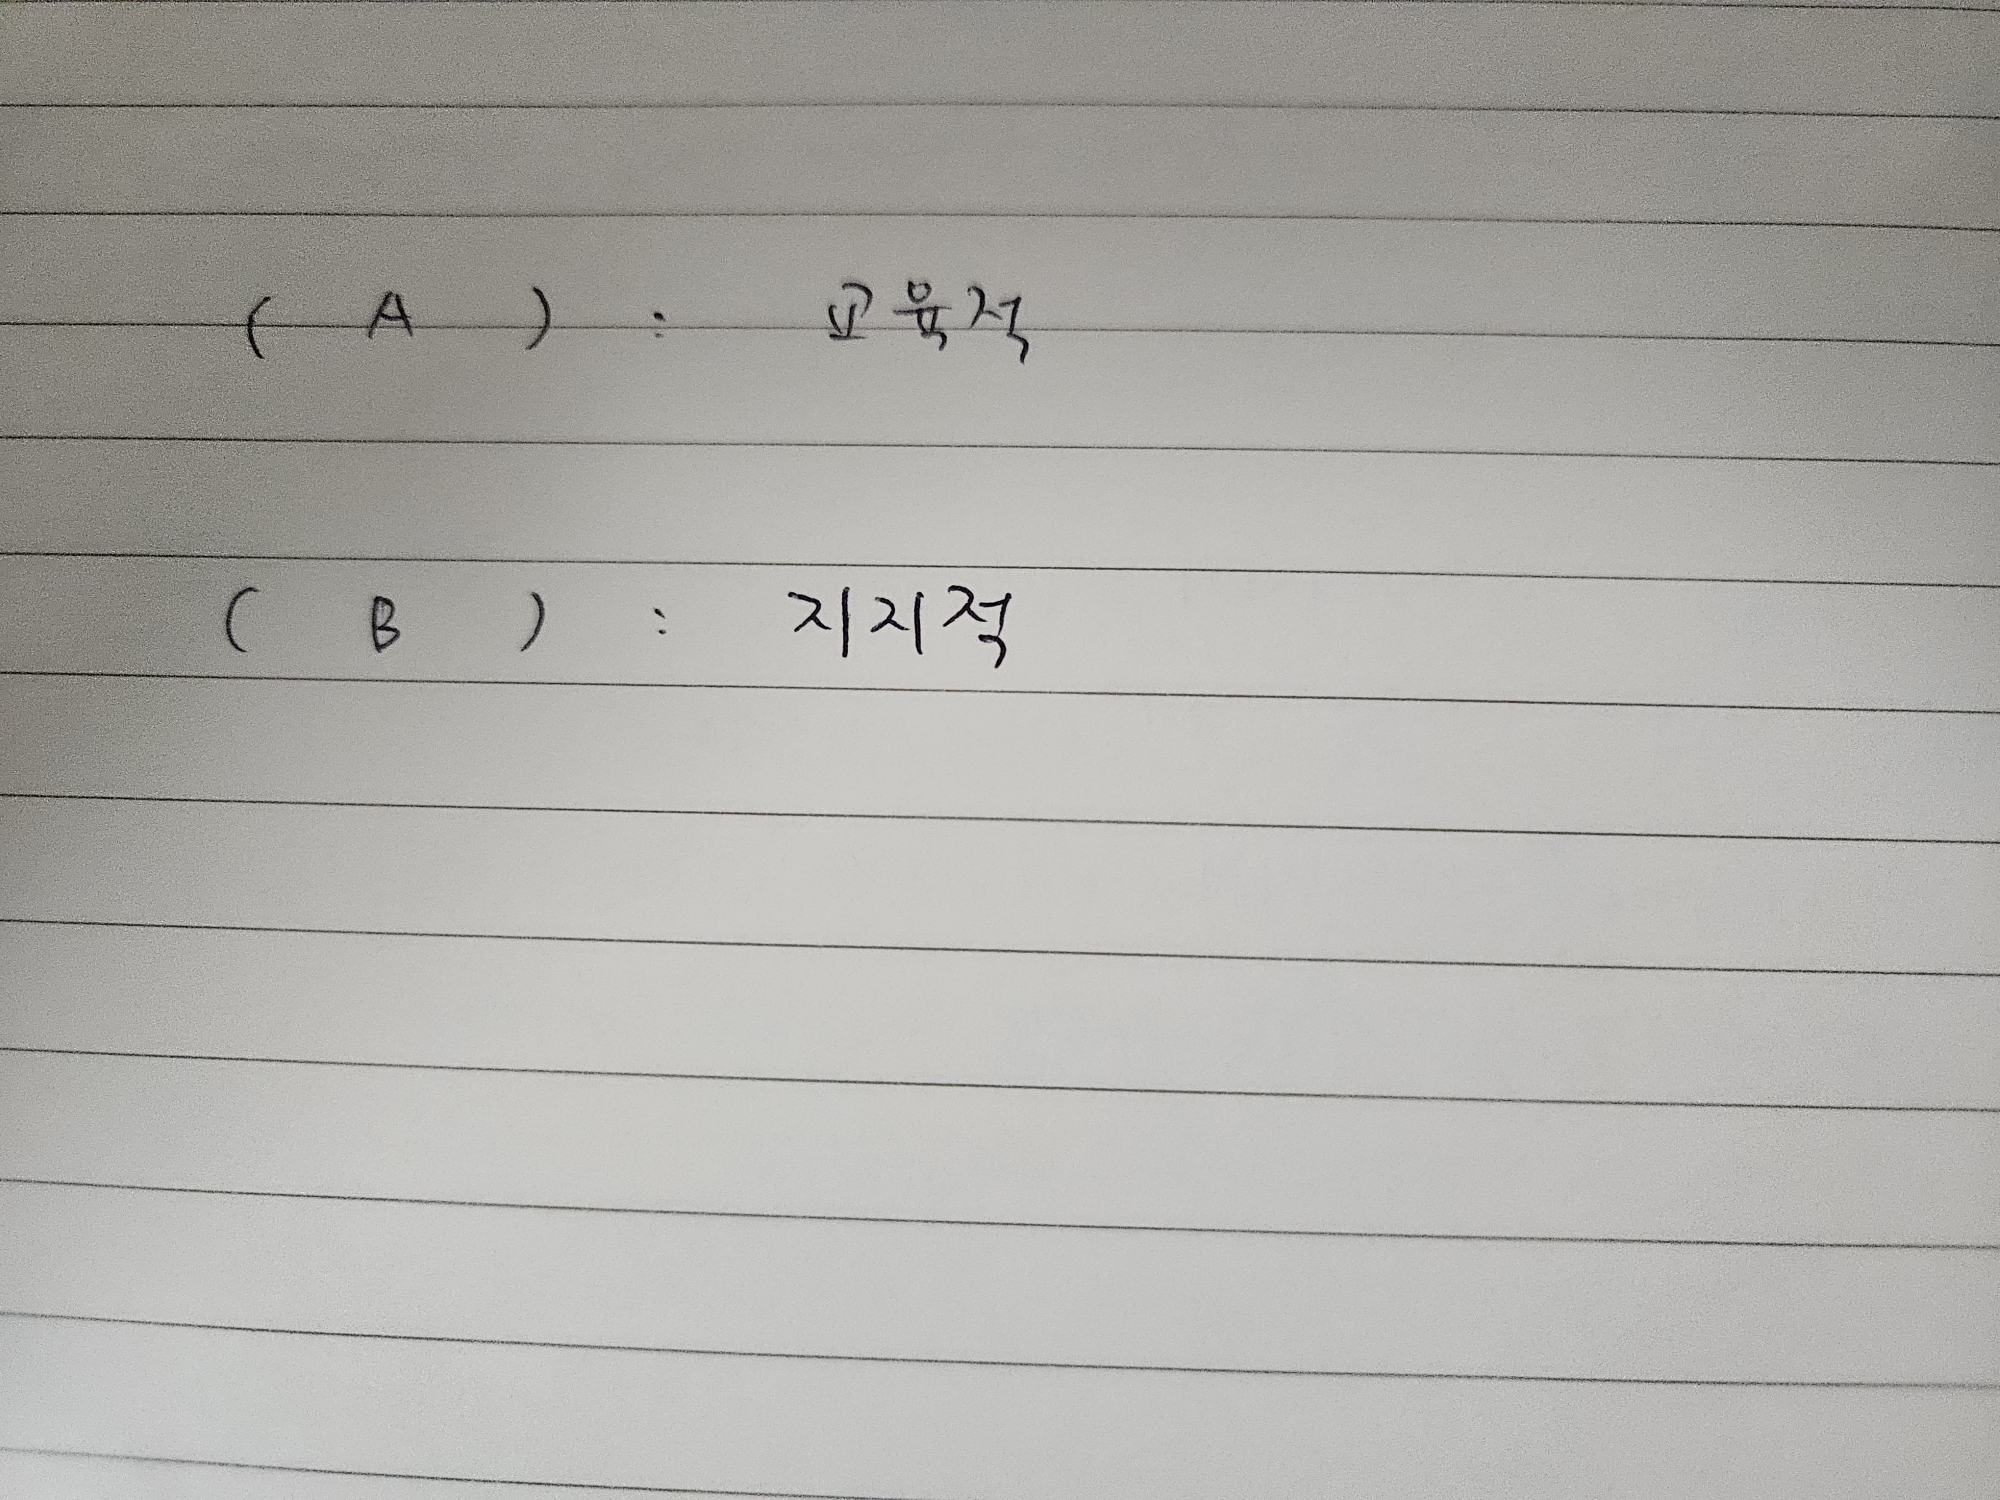 ( A ) : 교육적
( B ) : 지지적